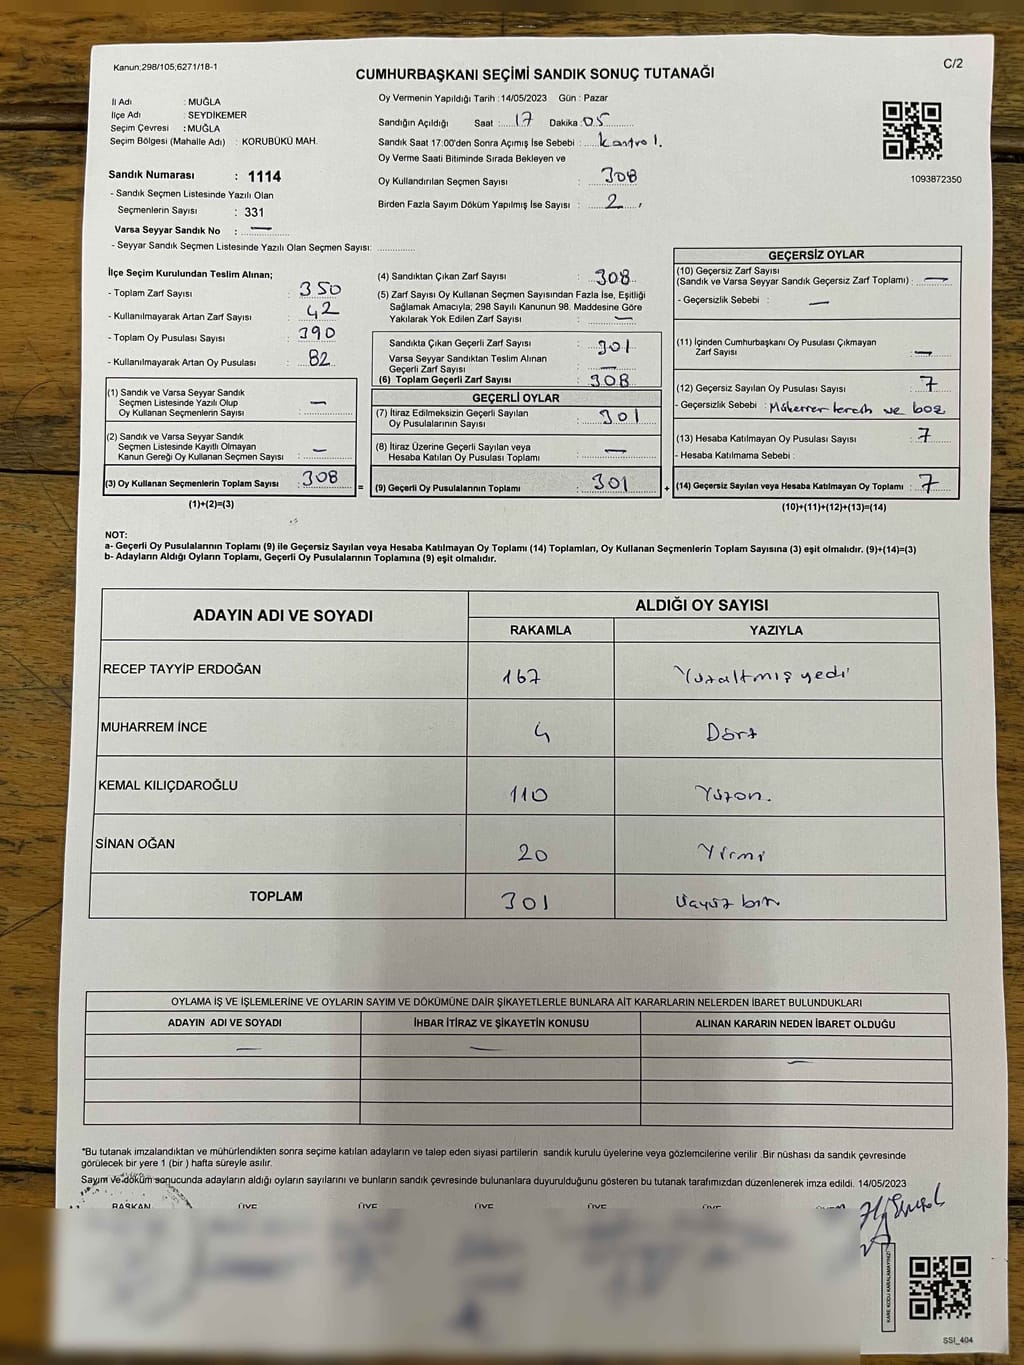 Kanun;298/105;6271/18-1
C/2
CUMHURBAŞKANI SEÇİMİ SANDIK SONUÇ TUTANAĞI
İl Adı : MUĞLA
İlçe Adı : SEYDİKEMER
Seçim Çevresi : MUĞLA
Seçim Bölgesi (Mahalle Adı) : KORUBÜKÜ MAH.
Sandık Numarası : 1114
- Sandık Seçmen Listesinde Yazılı Olan
Seçmenlerin Sayısı : 331
Varsa Seyyar Sandık No : —
- Seyyar Sandık Seçmen Listesinde Yazılı Olan Seçmen Sayısı: ............
Oy Vermenin Yapıldığı Tarih : 14/05/2023 Gün : Pazar
Sandığın Açıldığı Saat : 17 Dakika : 05
Sandık Saat 17:00'den Sonra Açımış İse Sebebi : kontrol.
Oy Verme Saati Bitiminde Sırada Bekleyen ve
Oy Kullandırılan Seçmen Sayısı : 308
Birden Fazla Sayım Döküm Yapılmış İse Sayısı : 2
1093872350
İlçe Seçim Kurulundan Teslim Alınan;
- Toplam Zarf Sayısı : 350
- Kullanılmayarak Artan Zarf Sayısı : 42
- Toplam Oy Pusulası Sayısı : 390
- Kullanılmayarak Artan Oy Pusulası : 82
(1) Sandık ve Varsa Seyyar Sandık
Seçmen Listesinde Yazılı Olup
Oy Kullanan Seçmenlerin Sayısı : —
(2) Sandık ve Varsa Seyyar Sandık
Seçmen Listesinde Kayıtlı Olmayan
Kanun Gereği Oy Kullanan Seçmen Sayısı : —
(3) Oy Kullanan Seçmenlerin Toplam Sayısı : 308
(1)+(2)=(3)
(4) Sandıktan Çıkan Zarf Sayısı : 308
(5) Zarf Sayısı Oy Kullanan Seçmen Sayısından Fazla İse, Eşitliği
Sağlamak Amacıyla; 298 Sayılı Kanunun 98. Maddesine Göre
Yakılarak Yok Edilen Zarf Sayısı : —
Sandıkta Çıkan Geçerli Zarf Sayısı : 301
Varsa Seyyar Sandıktan Teslim Alınan
Geçerli Zarf Sayısı : —
(6) Toplam Geçerli Zarf Sayısı : 308
GEÇERLİ OYLAR
(7) İtiraz Edilmeksizin Geçerli Sayılan
Oy Pusulalarının Sayısı : 301
(8) İtiraz Üzerine Geçerli Sayılan veya
Hesaba Katılan Oy Pusulası Toplamı : —
= (9) Geçerli Oy Pusulalarının Toplamı : 301
GEÇERSİZ OYLAR
(10) Geçersiz Zarf Sayısı
(Sandık ve Varsa Seyyar Sandık Geçersiz Zarf Toplamı) : —
- Geçersizlik Sebebi : —
(11) İçinden Cumhurbaşkanı Oy Pusulası Çıkmayan
Zarf Sayısı : —
(12) Geçersiz Sayılan Oy Pusulası Sayısı : 7
- Geçersizlik Sebebi : Mükerrer tercih ve boş
(13) Hesaba Katılmayan Oy Pusulası Sayısı : 7
- Hesaba Katılmama Sebebi :
+ (14) Geçersiz Sayılan veya Hesaba Katılmayan Oy Toplamı : 7
(10)+(11)+(12)+(13)=(14)
NOT:
a- Geçerli Oy Pusulalarının Toplamı (9) ile Geçersiz Sayılan veya Hesaba Katılmayan Oy Toplamı (14) Toplamları, Oy Kullanan Seçmenlerin Toplam Sayısına (3) eşit olmalıdır. (9)+(14)=(3)
b- Adayların Aldığı Oyların Toplamı, Geçerli Oy Pusulalarının Toplamına (9) eşit olmalıdır.
ADAYIN ADI VE SOYADI
ALDIĞI OY SAYISI
RAKAMLA YAZIYLA
RECEP TAYYİP ERDOĞAN 167 Yüzaltmış yedi
MUHARREM İNCE 4 Dört
KEMAL KILIÇDAROĞLU 110 Yüzon.
SİNAN OĞAN 20 Yirmi
TOPLAM 301 Üçyüz bir.
OYLAMA İŞ VE İŞLEMLERİNE VE OYLARIN SAYIM VE DÖKÜMÜNE DAİR ŞİKAYETLERLE BUNLARA AİT KARARLARIN NELERDEN İBARET BULUNDUKLARI
ADAYIN ADI VE SOYADI İHBAR İTİRAZ VE ŞİKAYETİN KONUSU ALINAN KARARIN NEDEN İBARET OLDUĞU
— — —
*Bu tutanak imzalandıktan ve mühürlendikten sonra seçime katılan adayların ve talep eden siyasi partilerin sandık kurulu üyelerine veya gözlemcilerine verilir .Bir nüshası da sandık çevresinde
görülecek bir yere 1 (bir ) hafta süreyle asılır.
Sayım ve döküm sonucunda adayların aldığı oyların sayılarını ve bunların sandık çevresinde bulunanlara duyurulduğunu gösteren bu tutanak tarafımızdan düzenlenerek imza edildi. 14/05/2023
BAŞKAN ÜYE ÜYE ÜYE ÜYE ÜYE
KARE KODU KARALAMAYINIZ
SSI_404